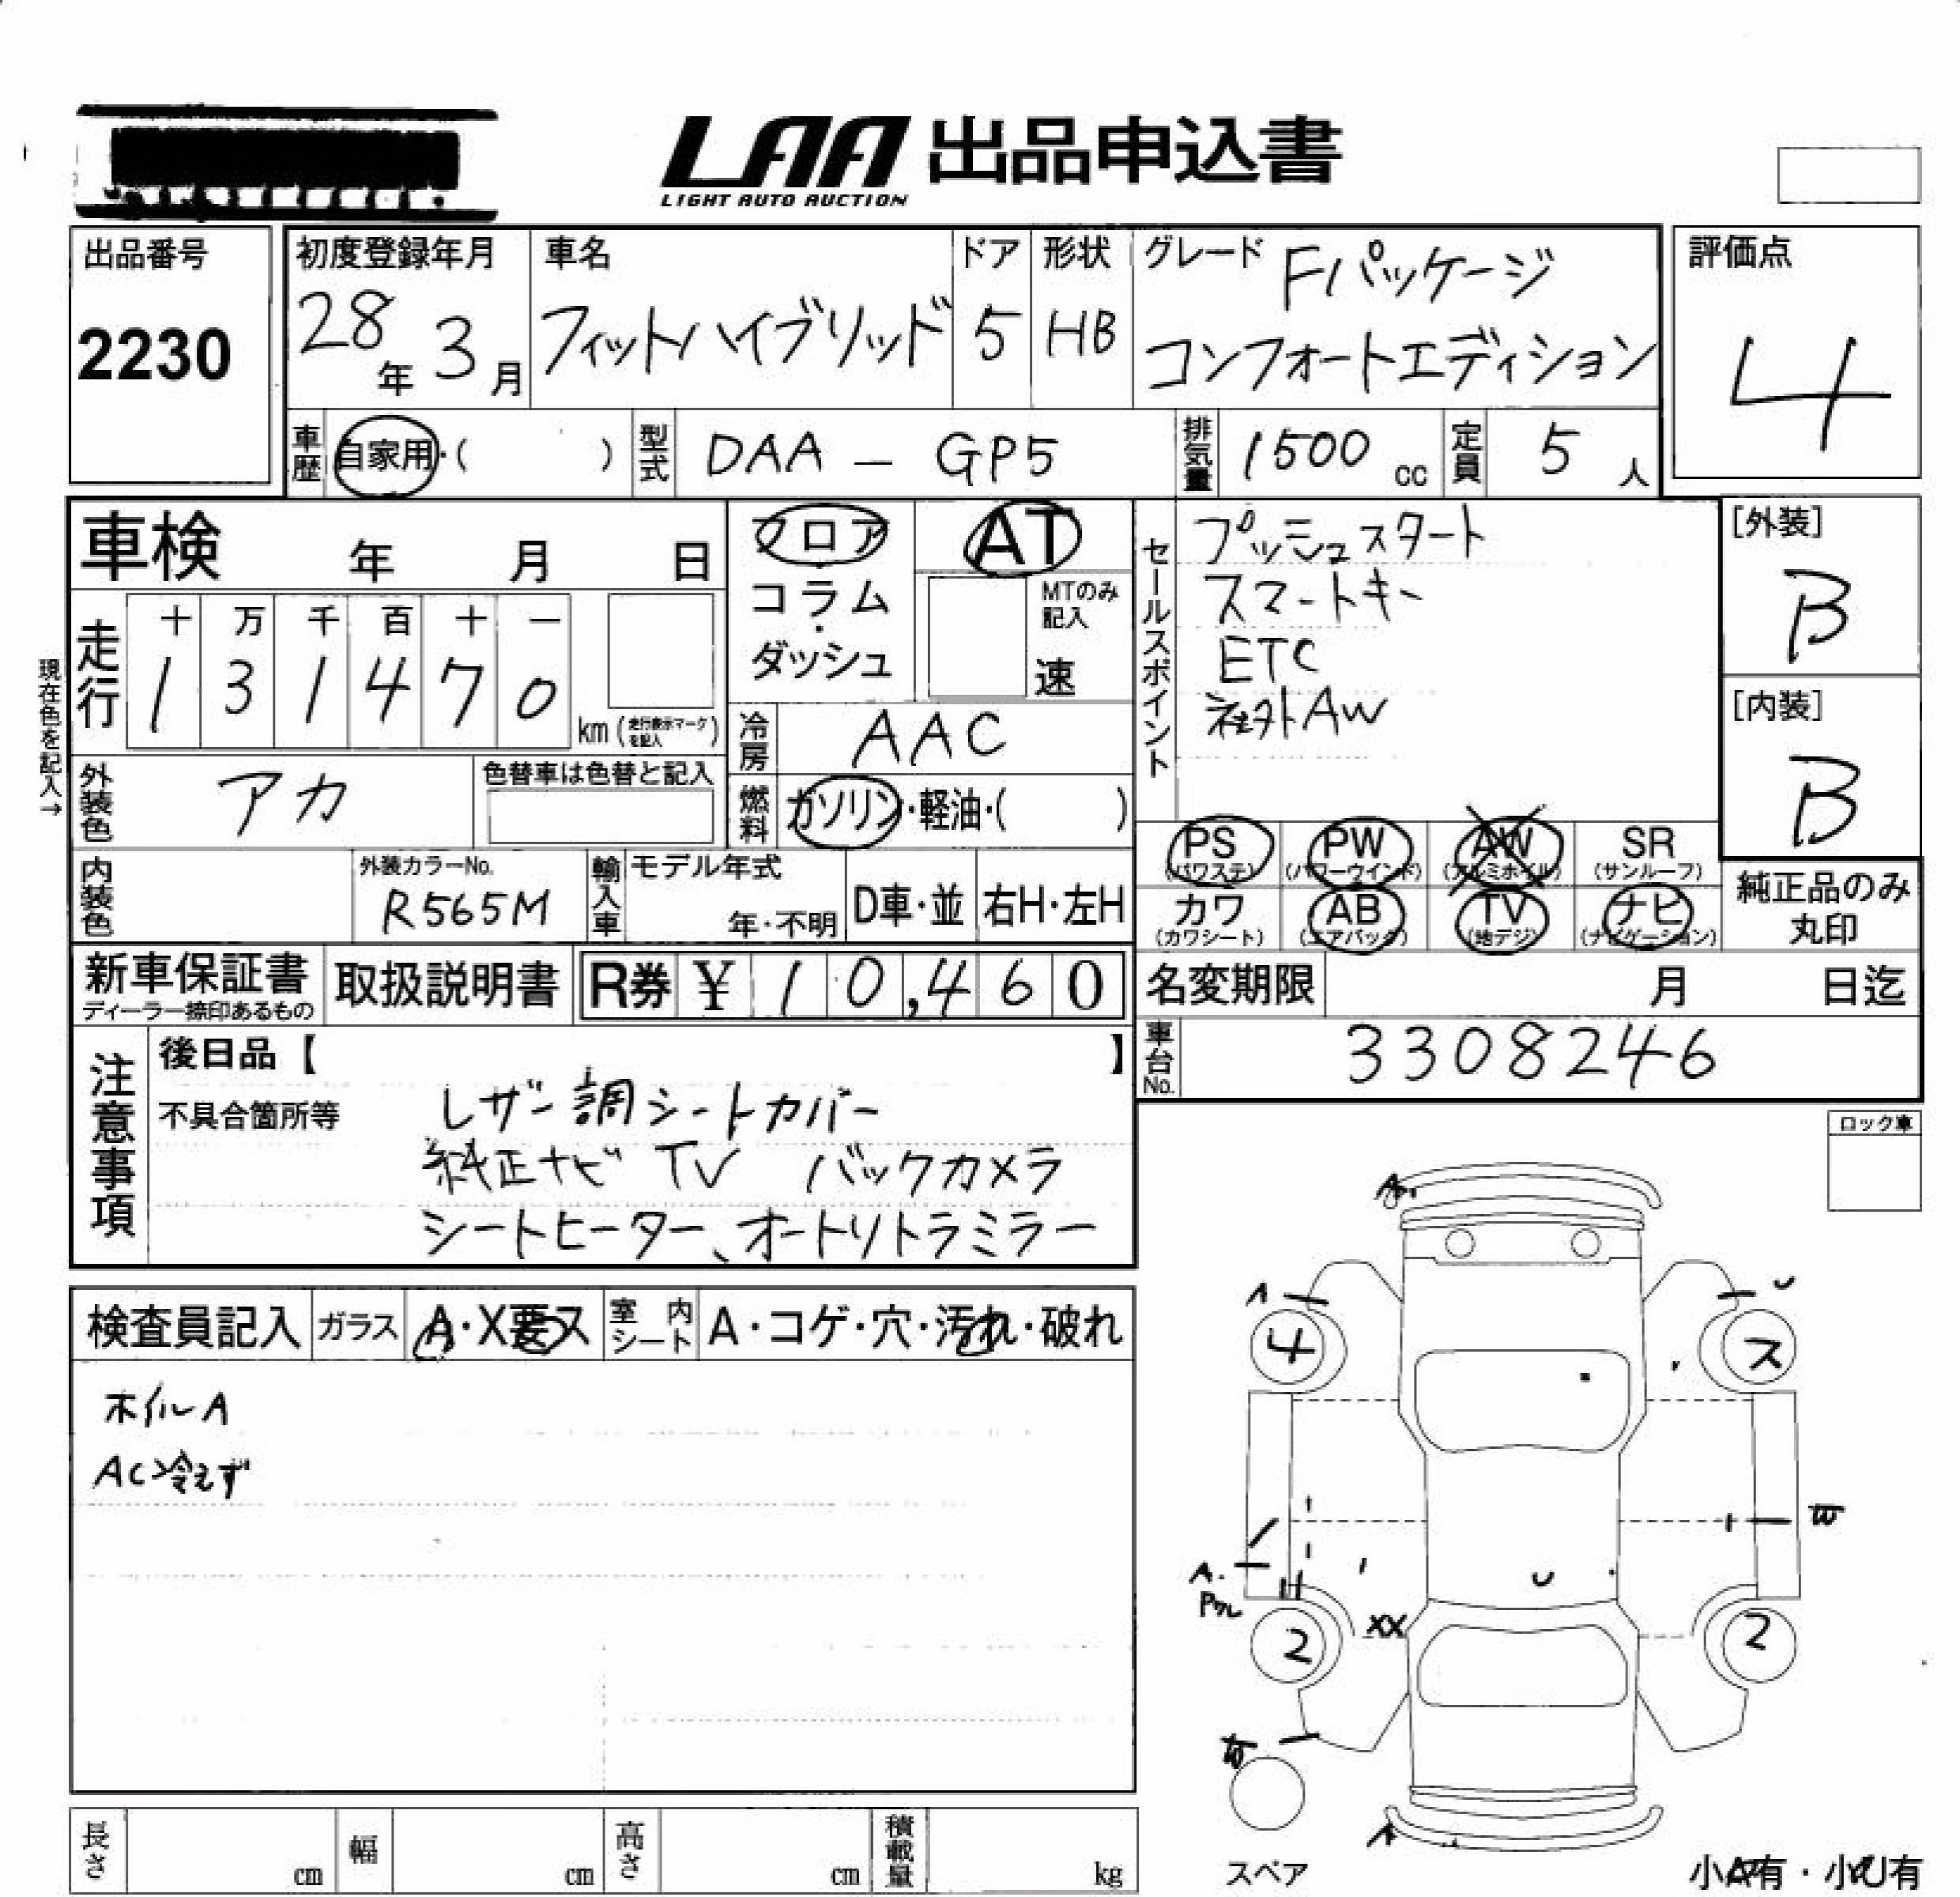 LAA 出品申込書
LIGHT AUTO AUCTION
出品番号
2230
初度登録年月
28年 3月
車名
フィットハイブリッド
ドア
5
形状
HB
グレード Fパッケージ
コンフォートエディション
評価点
4
車歴 自家用・( )
型式 DAA - GP5
排気量 1500 cc
定員 5 人
車検 年 月 日
フロア
コラム・
ダッシュ
AT
MTのみ
記入
速
セールスポイント
プッシュスタート
スマートキー
ETC
社外AW
[外装]
B
[内装]
B
現在色を記入→
走行
十 万 千 百 十 一
1 3 1 4 7 0
km (走行表示マークを記入)
冷房 AAC
外装色 アカ
色替車は色替と記入
燃料 ガソリン・軽油・( )
PS
(パワステ)
PW
(パワーウインド)
AW
(アルミホイル)
SR
(サンルーフ)
カワ
(カワシート)
AB
(エアバッグ)
TV
(地デジ)
ナビ
(ナビゲーション)
純正品のみ
丸印
内装色
外装カラーNo.
R565M
輸入車
モデル年式
年・不明
D車・並
右H・左H
新車保証書
ディーラー捺印あるもの
取扱説明書
R券 ¥ 10,460
名変期限 月 日迄
車台No. 3308246
注意事項
後日品【 】
不具合箇所等
レザー調シートカバー
純正ナビ TV バックカメラ
シートヒーター、オートリトラミラー
ロック車
検査員記入
ガラス
A・X要ス
室内シート
A・コゲ・穴・汚れ・破れ
ホイルA
AC冷えず
A
4
ス
A.
Pワレ
XX
U
W
2
2
スペア
長さ cm
幅 cm
高さ cm
積載量 kg
小A有・小U有